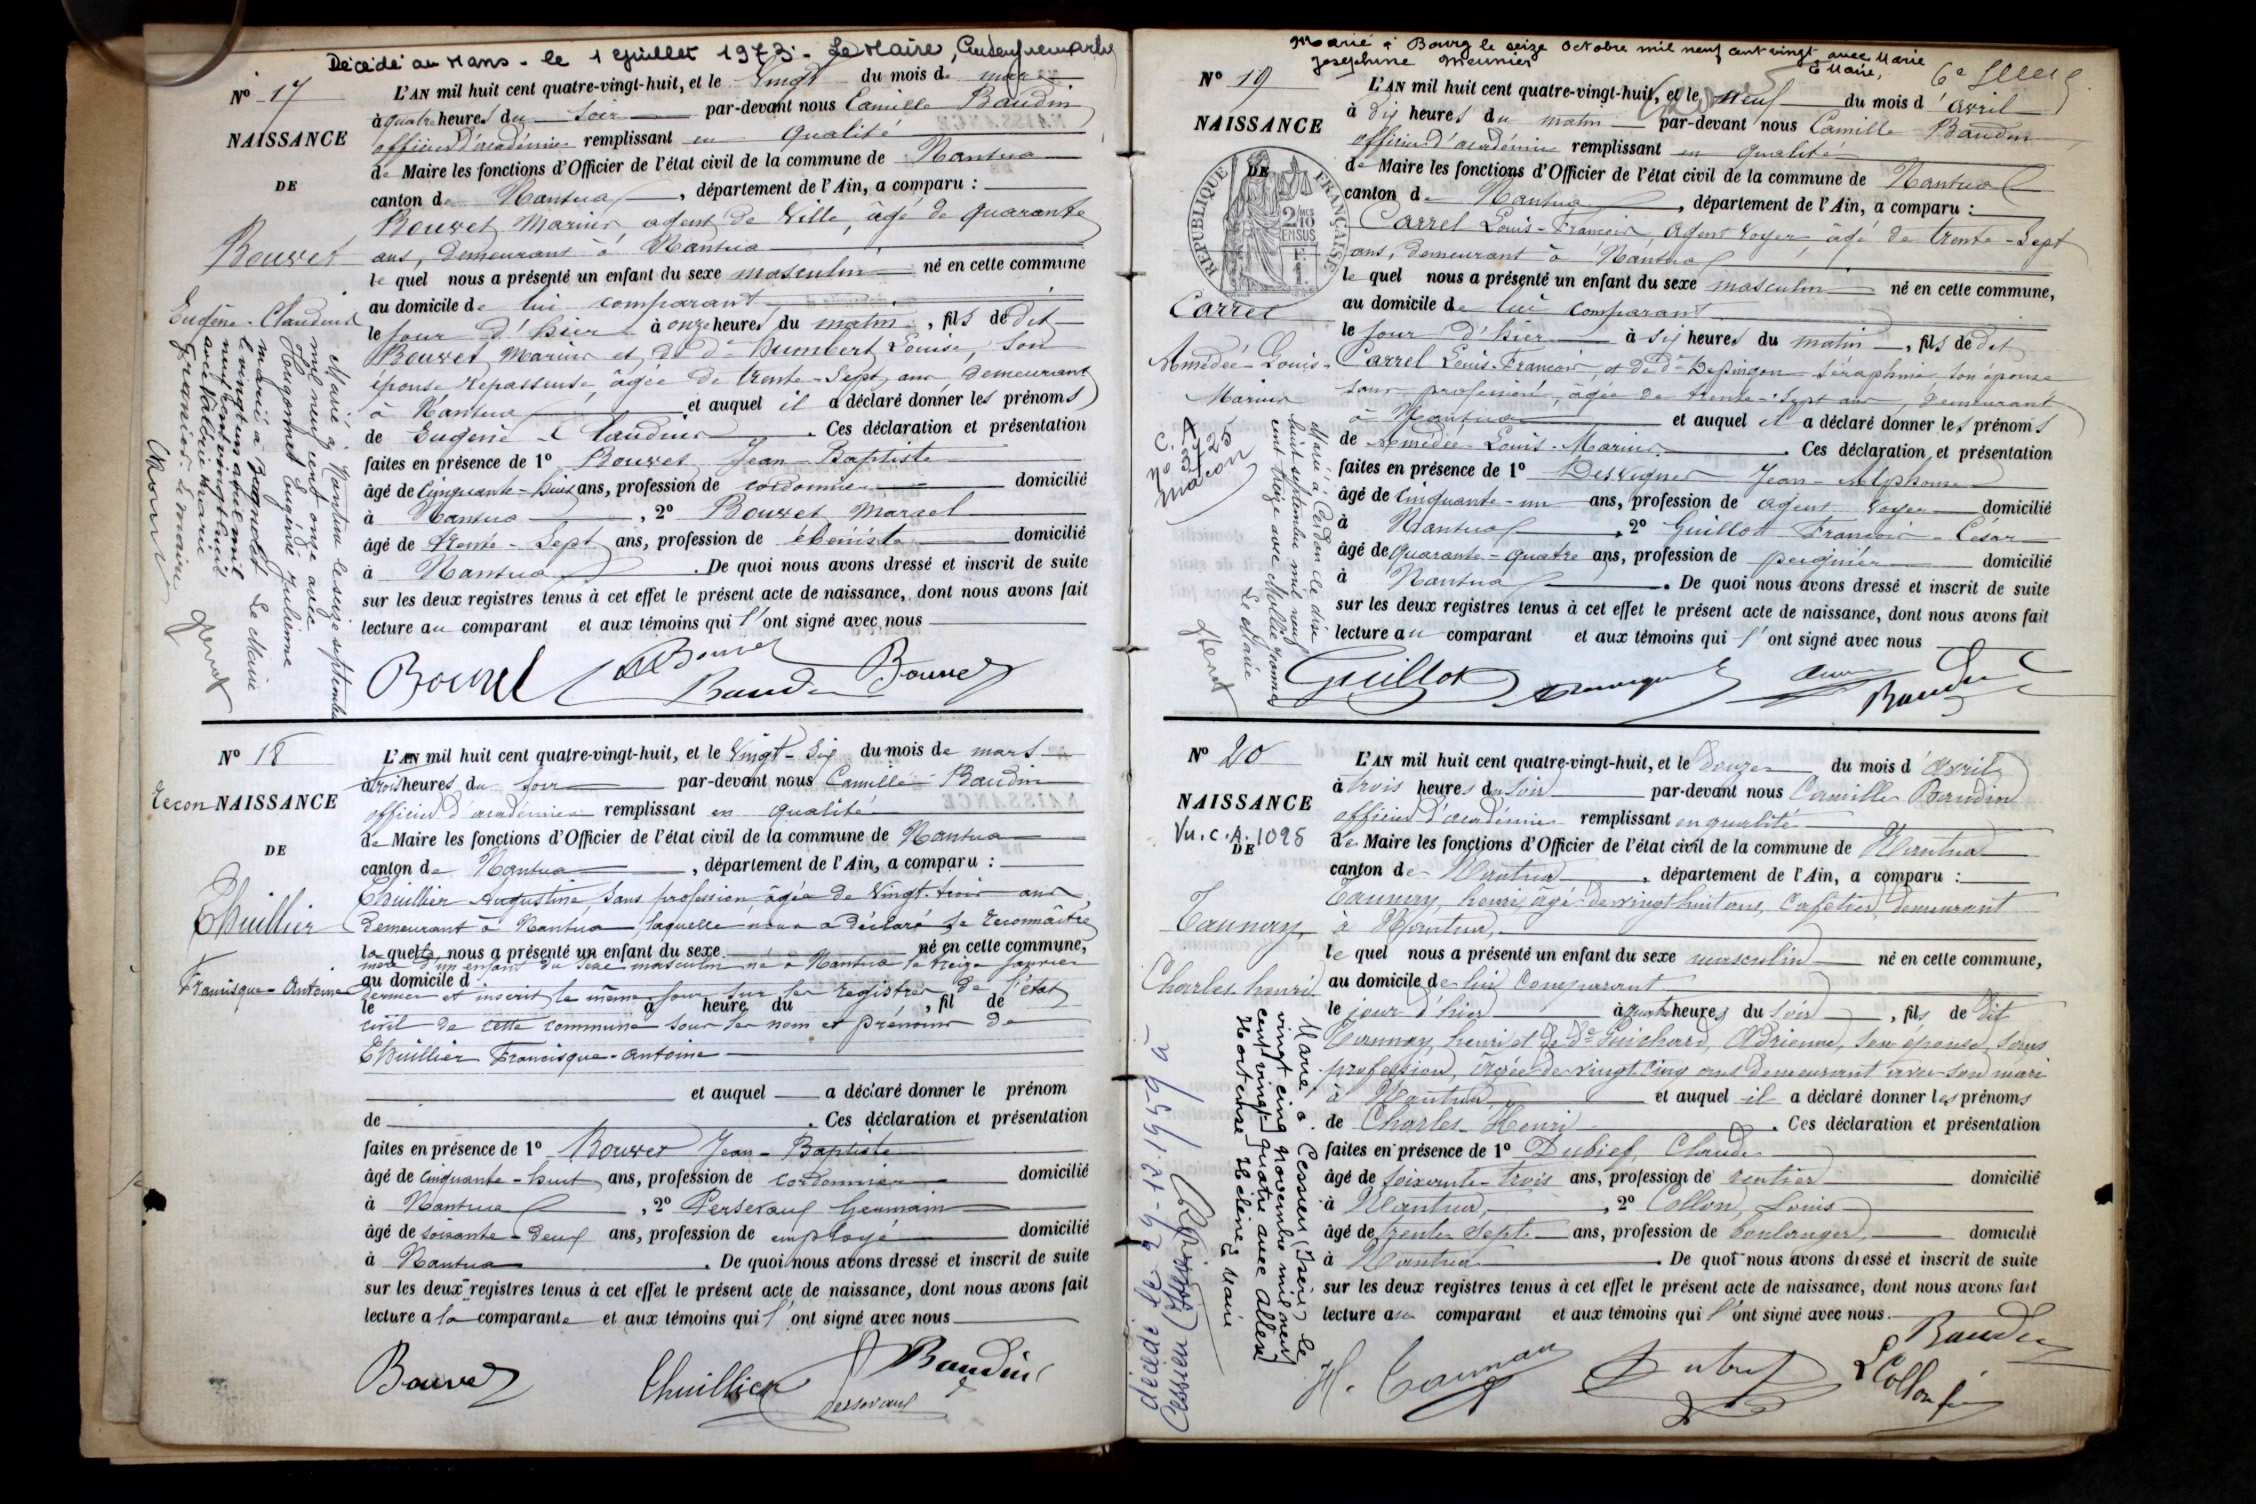 Décédé au Mans - le 1 Juillet 1973. Le Maire,
N° 17
L'AN mil huit cent quatre-vingt-huit, et le Vingt du mois de mars
à quatre heures du soir par-devant nous Camille Baudin
NAISSANCE
officier d'académie remplissant en qualité
de Maire les fonctions d'Officier de l'état civil de la commune de Nantua
DE
canton de Nantua, département de l'Ain, a comparu :
Bouvet Marius agent de Ville, âgé de quarante
Bouvet
ans, demeurant à Nantua
le quel nous a présenté un enfant du sexe masculin né en cette commune
au domicile de lui comparant
Eugène-Claudius
le jour d'hier à onze heures du matin, fils de dit
Bouvet Marius et de de Humbert Louise, son
épouse repasseuse, âgée de trente-sept ans demeurant
à Nantua et auquel il a déclaré donner les prénoms
de Eugène-Claudius. Ces déclaration et présentation
faites en présence de 1° Bouvet Jean-Baptiste
âgé de cinquante-huit ans, profession de cordonnier domicilié
à Nantua, 2° Bouvet Marcel
âgé de trente-sept ans, profession de ébéniste domicilié
à Nantua. De quoi nous avons dressé et inscrit de suite
sur les deux registres tenus à cet effet le présent acte de naissance, dont nous avons fait
lecture au comparant et aux témoins qui l'ont signé avec nous
Marié à Nantua le seize septembre
mil neuf cent onze avec
Hugonnet Eugénie Julienne
Le Maire
marié à
le vingt un avril mil
neuf cent vingt huit
avec Valérie Marie
Francios. Le maire
Bouvet Bouvet
Baudin Bouvet
N° 18
L'AN mil huit cent quatre-vingt-huit, et le Vingt-six du mois de mars
à trois heures du soir par-devant nous Camille Baudin
Recon NAISSANCE
officier d'académie remplissant en qualité
de Maire les fonctions d'Officier de l'état civil de la commune de Nantua
DE
canton de Nantua, département de l'Ain, a comparu :
Thuillier Augustine sans profession, âgée de vingt-trois ans
Thuillier
demeurant à Nantua, laquelle nous a déclaré se reconnaître
la quelle nous a présenté un enfant du sexe né en cette commune,
mère d'un enfant du sexe masculin né à Nantua le treize janvier
au domicile d
Francisque-Antoine
dernier et inscrit le même jour sur les registres de l'état
le à heure du, fil de
civil de cette commune sous les nom et prénoms de
Thuillier Francisque-Antoine
et auquel a déclaré donner le prénom
de. Ces déclaration et présentation
faites en présence de 1° Bouvet Jean-Baptiste
âgé de cinquante-huit ans, profession de cordonnier domicilié
à Nantua, 2° Perseraud Germain
âgé de soixante-deux ans, profession de employé domicilié
à Nantua. De quoi nous avons dressé et inscrit de suite
sur les deux registres tenus à cet effet le présent acte de naissance, dont nous avons fait
lecture a la comparante et aux témoins qui l'ont signé avec nous
Bouvet Thuillier Baudin
Perseraud
Marié à Bourg le seize Octobre mil neuf cent vingt avec Marie
Joséphine Meunier Le Maire,
N° 19
L'AN mil huit cent quatre-vingt-huit, et le neuf du mois d'avril
à dix heures du matin par-devant nous Camille Baudin
NAISSANCE
officier d'académie remplissant en qualité
de Maire les fonctions d'Officier de l'état civil de la commune de Nantua
DE
canton de Nantua, département de l'Ain, a comparu :
RÉPUBLIQUE FRANÇAISE
Carrel Louis-François, Agent Voyer, âgé de trente-sept
ans, demeurant à Nantua
le quel nous a présenté un enfant du sexe masculin né en cette commune,
Carrel
au domicile de lui comparant
le jour d'hier à six heures du matin, fils de dit
Amédée-Louis-
Carrel Louis-François, et de de Depingon Séraphine son épouse
Marius
sans profession, âgée de trente-sept ans, demeurant
à Nantua et auquel il a déclaré donner les prénoms
de Amédée-Louis-Marius. Ces déclaration et présentation
faites en présence de 1° Desvignes Jean-Alphonse
âgé de cinquante-un ans, profession de agent voyer domicilié
à Nantua, 2° Guillot François-César
âgé de quarante-quatre ans, profession de peignier domicilié
à Nantua. De quoi nous avons dressé et inscrit de suite
sur les deux registres tenus à cet effet le présent acte de naissance, dont nous avons fait
lecture au comparant et aux témoins qui l'ont signé avec nous
Mâcon
Marié à Cerdon le dix
huit septembre mil neuf
cent treize avec Mollie
Le Maire
Guillot
Baudin
N° 20
L'AN mil huit cent quatre-vingt-huit, et le Douze du mois d'avril
à trois heures du soir par-devant nous Camille Baudin
NAISSANCE
officier d'académie remplissant en qualité
Vu. C. A. 1095
DE
de Maire les fonctions d'Officier de l'état civil de la commune de Nantua
canton de Nantua, département de l'Ain, a comparu :
Taunay, henri, âgé de vingt huit ans, Cafetier, demeurant
Taunay
à Nantua,
le quel nous a présenté un enfant du sexe masculin né en cette commune,
Charles-henri
au domicile de lui comparant
le jour d'hier à quatre heures du soir, fils de dit
Taunay, henri et de de Guichard, Adrienne, son épouse, sans
profession, âgée de vingt cinq ans demeurant avec son mari
à Nantua et auquel il a déclaré donner les prénoms
de Charles-Henri. Ces déclaration et présentation
faites en présence de 1° Dubief, Claude
âgé de soixante-trois ans, profession de rentier domicilié
à Nantua, 2° Collon, Louis
âgé de trente sept ans, profession de boulanger, domicilié
à Nantua. De quoi nous avons dressé et inscrit de suite
sur les deux registres tenus à cet effet le présent acte de naissance, dont nous avons fait
lecture au comparant et aux témoins qui l'ont signé avec nous
Marié à Cessieu (Isère) le
vingt cinq novembre mil neuf
cent vingt quatre avec
Hortense Hélène Le Maire
décédé le 29-12-1959 à
Cessieu (Isère)
H. Taunay Dubief Baudin
L Collon